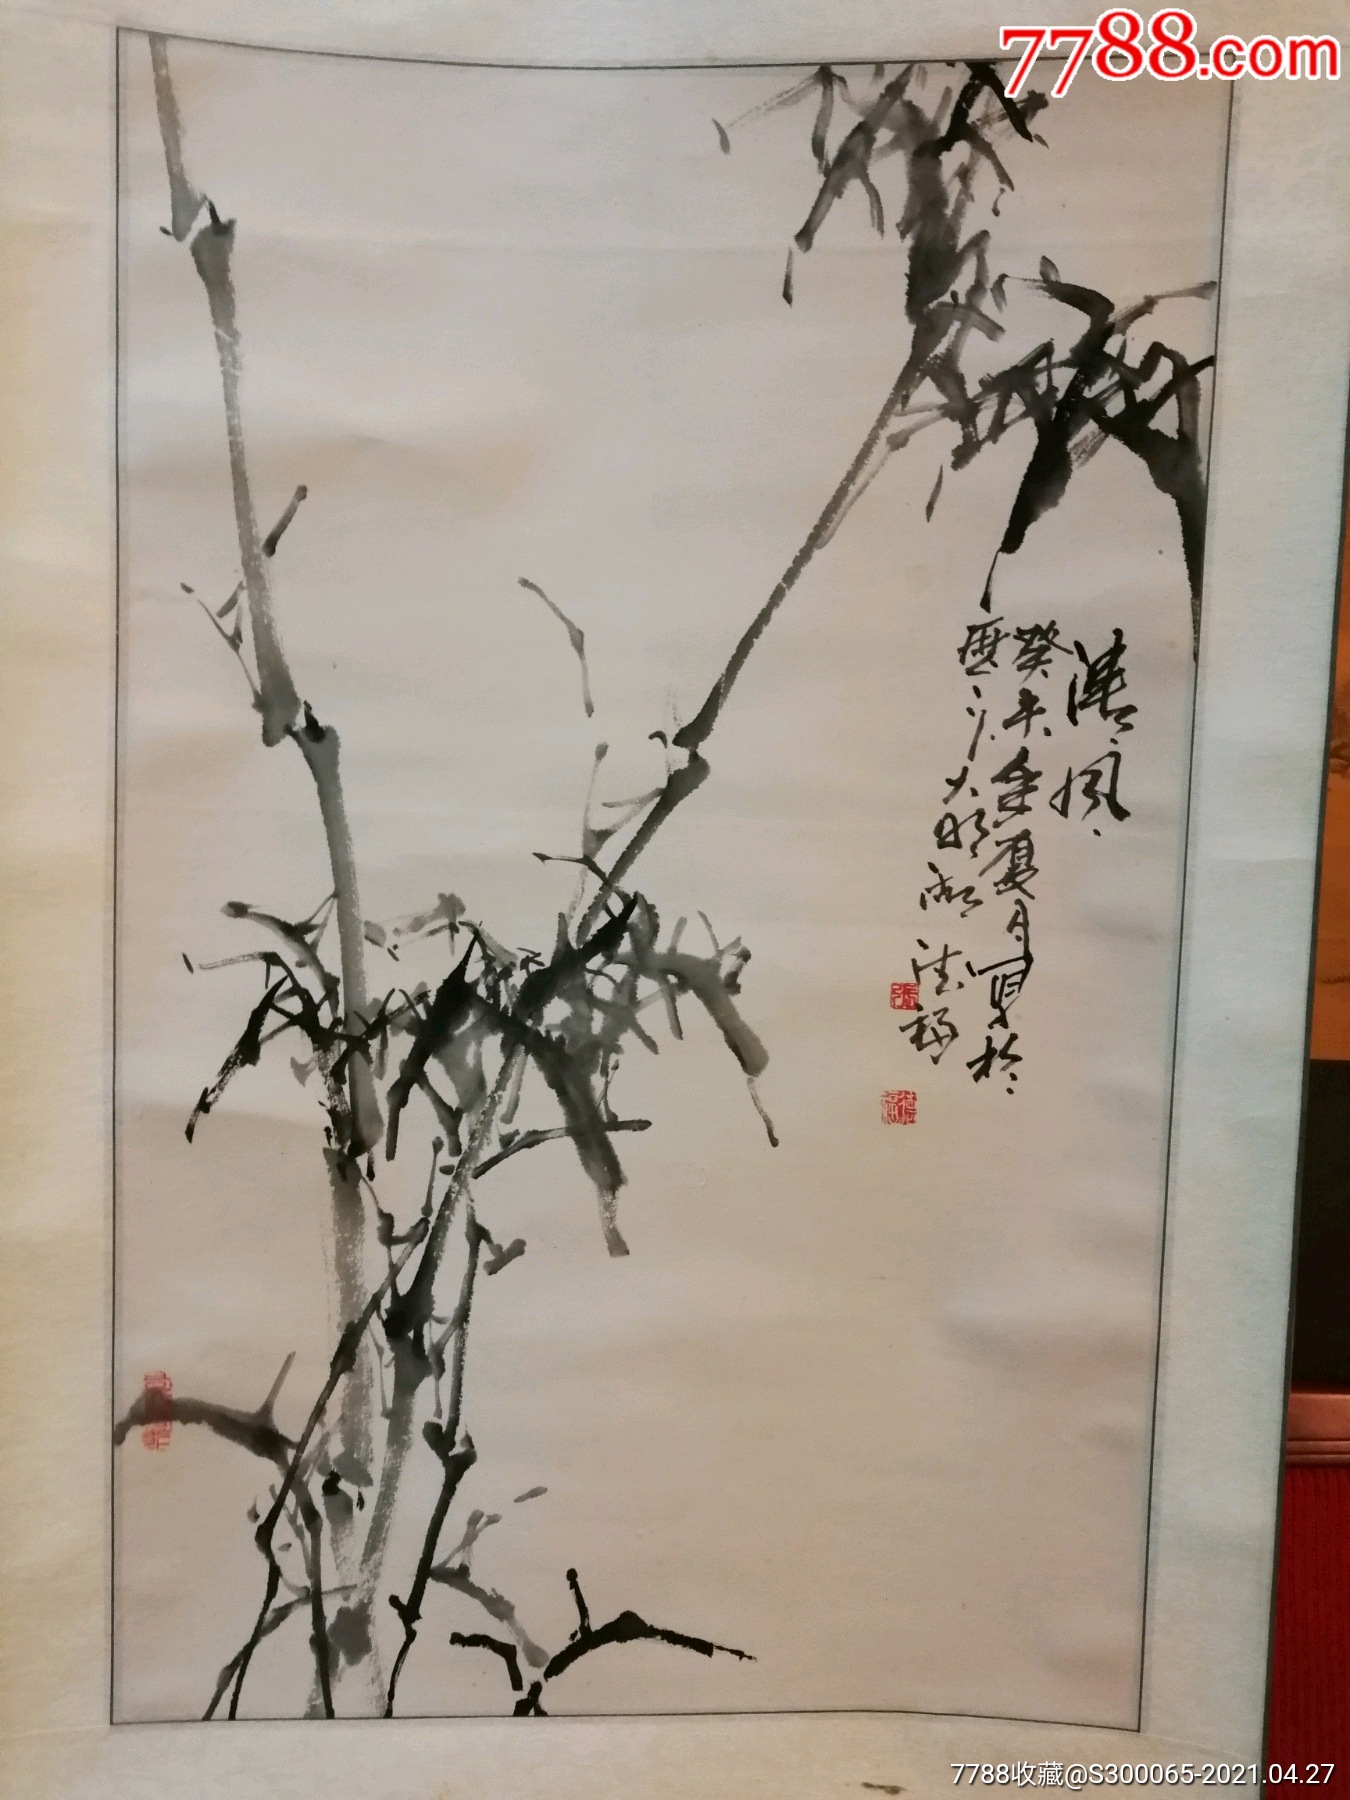 7788.com
清風
癸未年夏月寫於
歷下大明湖
德福
張
德福
7788收藏@S300065-2021.04.27